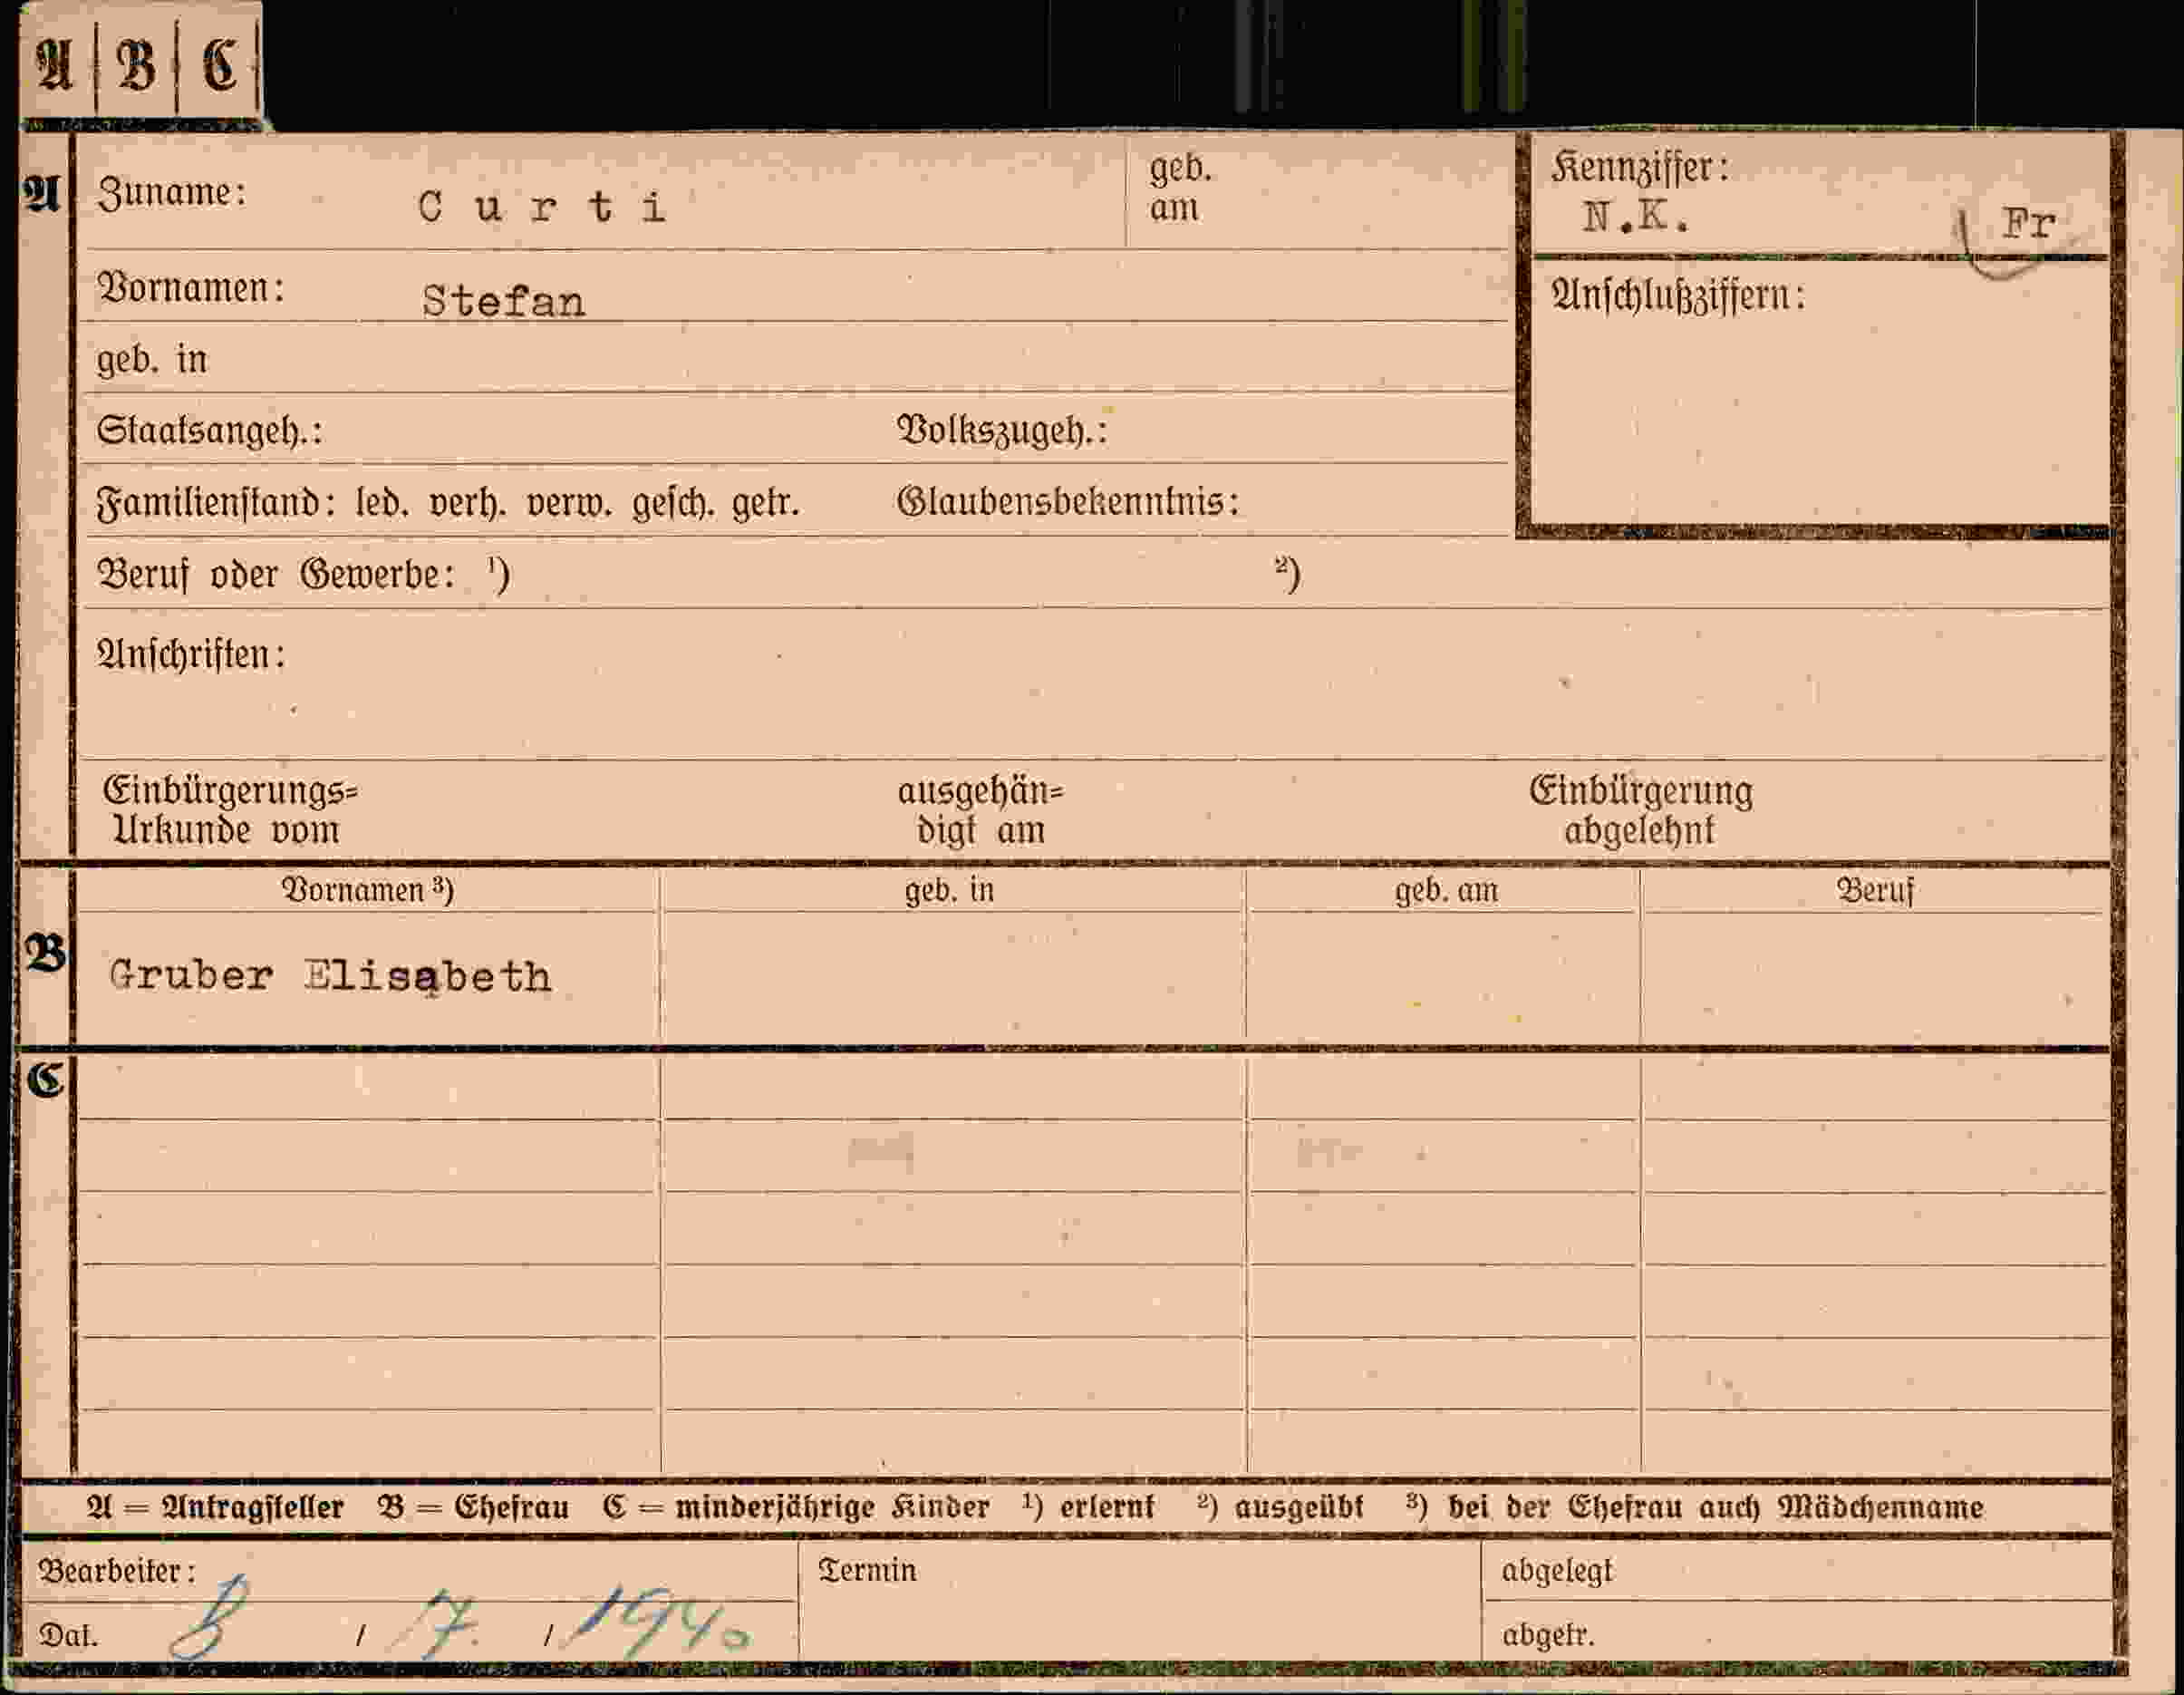 A | B | C
A Zuname: Curti geb. am
Kennziffer: N.K. Fr
Vornamen: Stefan
Anschlußziffern:
geb. in
Staatsangeh.: Volkszugeh.:
Familienstand: led. verh. verw. gesch. getr. Glaubensbekenntnis:
Beruf oder Gewerbe: ¹) ²)
Anschriften:
Einbürgerungs=
Urkunde vom
ausgehän=
digt am
Einbürgerung
abgelehnt
Vornamen ³) geb. in geb. am Beruf
B Gruber Elisabeth
C
A = Antragsteller B = Ehefrau C = minderjährige Kinder ¹) erlernt ²) ausgeübt ³) bei der Ehefrau auch Mädchenname
Bearbeiter: Termin abgelegt
Dat. 8 / 7. / 1940 abgetr.